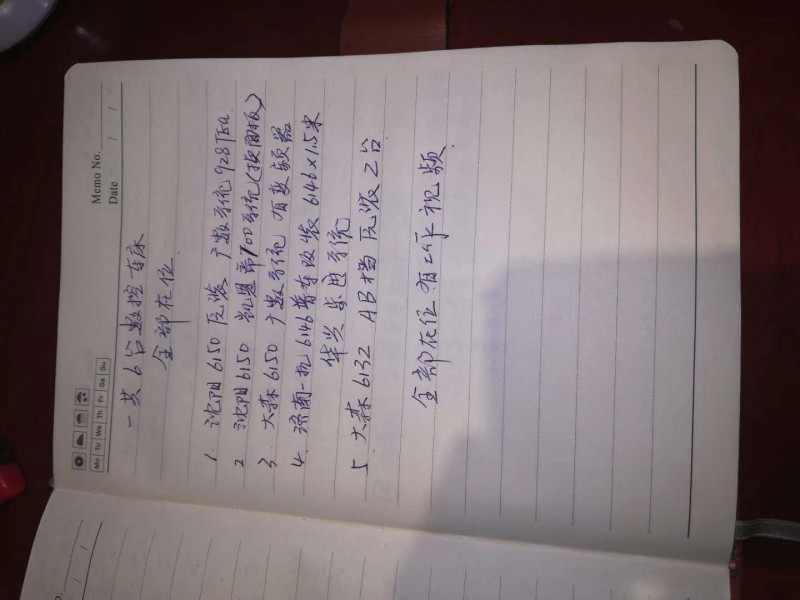 Memo No.
Date / /
Mo Tu We Th Fr Sa Su
一共6台数控车床
全部在位
1. 沈阳6150瓦装 广数系统928TEa
2 沈阳6150 凯恩帝100系统(换面板)
3 大森6150 广数系统 有变频器
4. 济南一机6146普车改装 6146×1.5米
华兴 系统
5. 大森6132 AB档瓦装2台
全部在位 有工作视频.